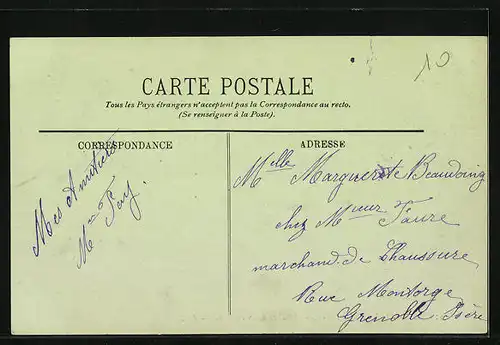 10
CARTE POSTALE
Tous les Pays étrangers n'acceptent pas la Correspondance au recto.
(Se renseigner à la Poste).
CORRESPONDANCE
ADRESSE
Mes Amitiés
Mme Fay.
Melle Marguerite Beaudoing
chez Mmeur Faure
marchand de Chaussure
Rue Montorge
Grenoble. Isère